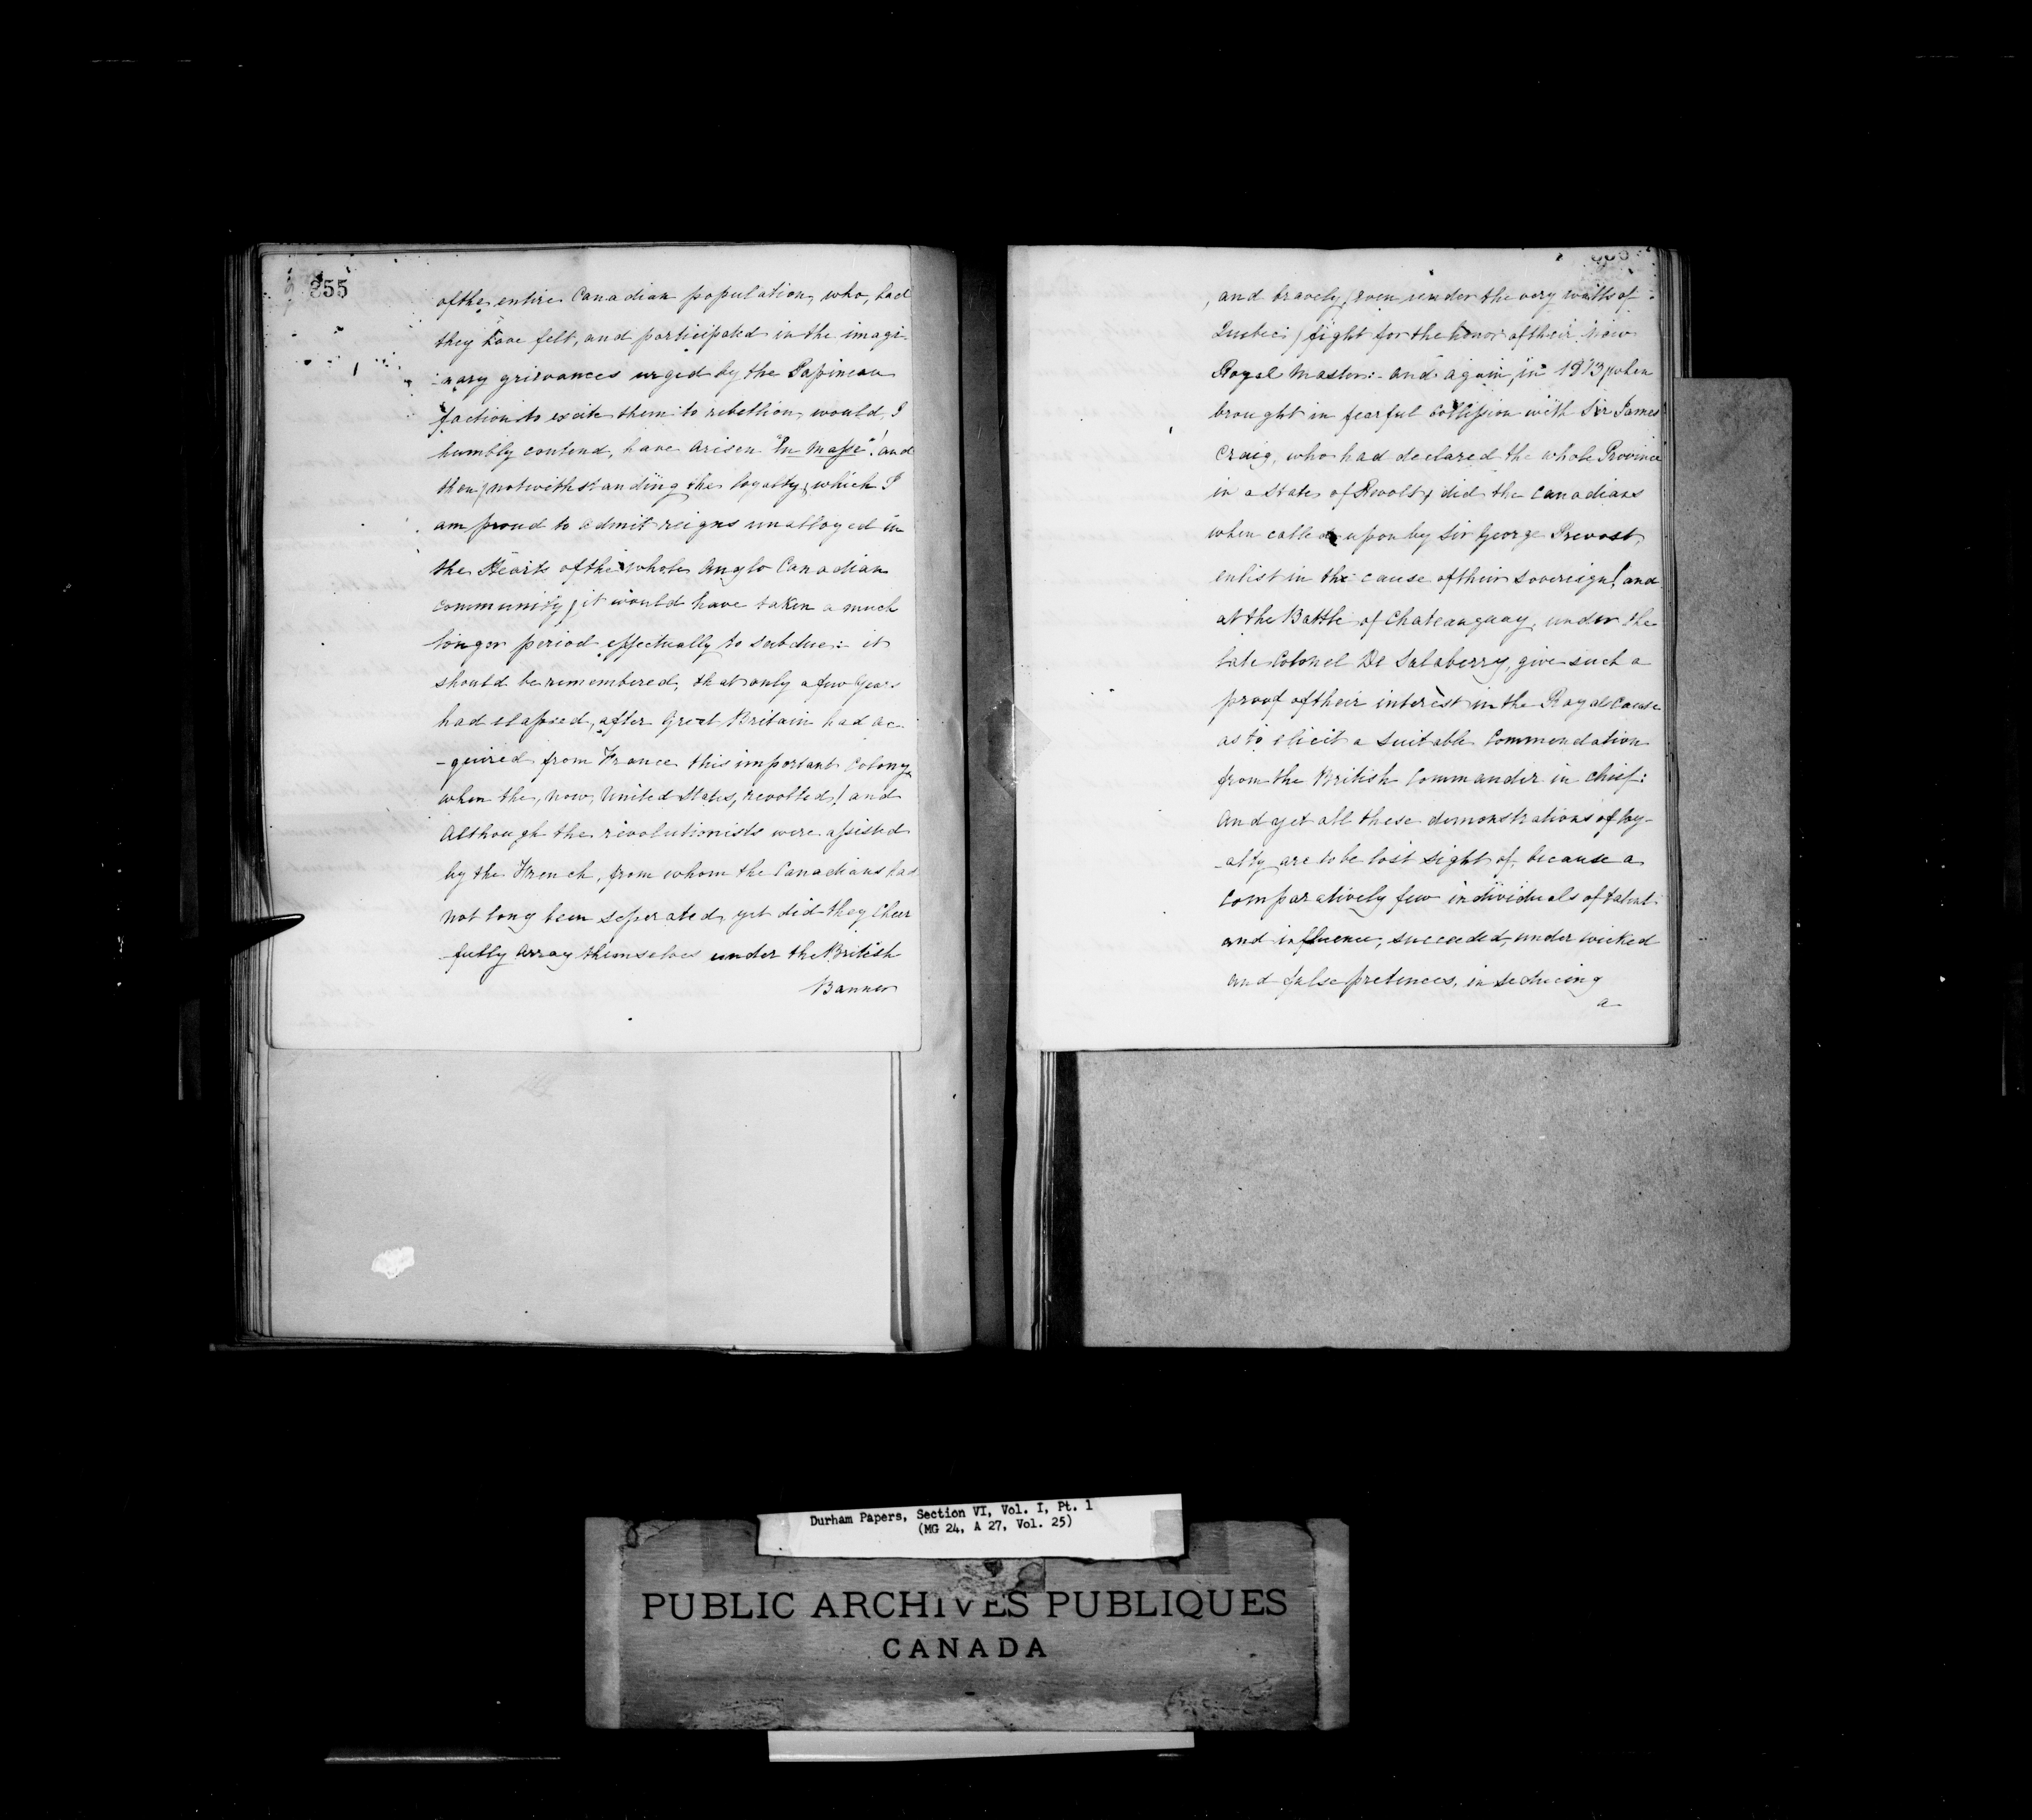 855
of the entire Canadian population, who, had
they have felt, and participated in the imagi-
-nary grievances urged by the Papineau
faction to excite them to rebellion, would, I
humbly contend, have arisen "En Masse"! and
then, notwithstanding the loyalty, which I
am proud to admit reigns unalloyed in
the Hearts of the whole Anglo Canadian
community, it would have taken a much
longer period effectually to subdue:- it
should be remembered, that only a few years
had elapsed, after Great Britain had ac-
-quired from France this important Colony,
when the, now, United States, revolted,! and
Although the revolutionists were assisted
by the French, from whom the Canadians had
not long been seperated, yet did they Cheer
fully array themselves under the British
Banner
, and bravely, (even under the very walls of
Quebec) fight for the honor of their new
Royal Master:- and again, in 1813, when
brought in fearful Collission with Sir James
Craig, who had declared the whole Province
in a State of Revolt, did the Canadians
when called upon by Sir George Prevost,
enlist in the cause of their Sovereign! and
at the Battle of Chateauguay, under the
late Colonel De Salaberry, give such a
proof of their interest in the Royal Cause
as to elicit a suitable Commendation
from the British Commander in chief:
And yet all these demonstrations of loy-
-alty are to be lost sight of, because a
Comparatively few individuals of talent
and influence, succeeded, under wicked
and false pretences, in seducing
a
Durham Papers, Section VI, Vol. I, Pt. 1
(MG 24, A 27, Vol. 25)
PUBLIC ARCHIVES PUBLIQUES
CANADA